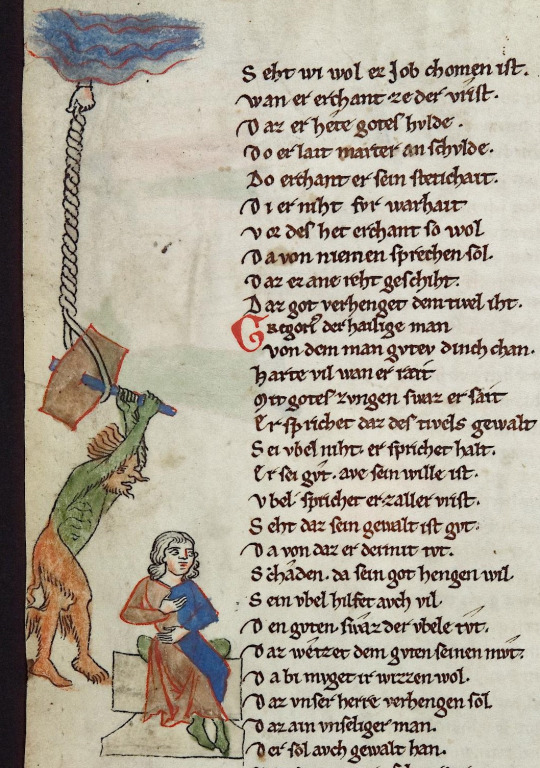 Seht wi wol er Job chomen ist.
wan er erchant ze der vrist.
Daz er hete gotes hvlde.
Do er lait marter an schvlde.
Do erchant er sein stetichait.
Di er niht fvr warhait
vor des het erchant so wol
Da von niemen sprechen sol.
Daz ez ane reht geschiht.
Daz got verhenget dem tivel iht.
Gregori⁹ der hailige man
von dem man gvtev dinch chan.
harte vil wan er rait
Mit gotes zvngen swaz er sait
Er sprichet daz des tivels gewalt
Sei vbel niht. er sprichet halt.
Er sei gvt. ave sein wille ist.
vbel sprichet er zaller vrist.
Seht daz sein gewalt ist gvt.
Da von daz er dermit tvt.
Schaden. da sein got hengen wil
Sein vbel hilfet avch vil
Den gvten. swaz der vbele tvt.
Daz wetzet dem gvten seinen mvt.
Da bi mvget ir wizzen wol.
Daz vnser herre verhengen sol
Daz ain vnseliger man.
Der sol avch gewalt han.